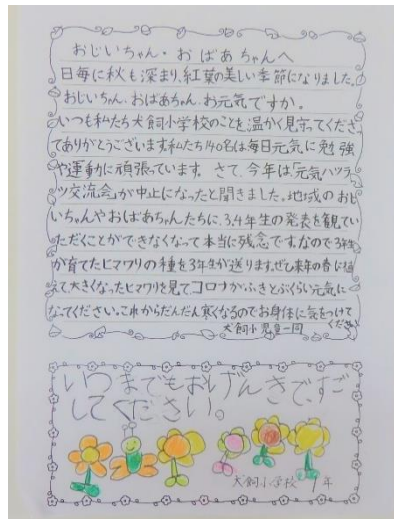 おじいちゃん・おばあちゃんへ
日毎に秋も深まり、紅葉の美しい季節になりました。
おじいちゃん、おばあちゃん、お元気ですか。
いつも私たち犬飼小学校のことを温かく見守ってくださっ
てありがとうございます。私たち140名は毎日元気に勉強
や運動に頑張っています。さて、今年は「元気ハツラ
ツ交流会」が中止になったと聞きました。地域のおじ
いちゃんやおばあちゃんたちに、3,4年生の発表を観てい
ただくことができなくなって本当に残念です。なので3年生
が育てたヒマワリの種を3年生が送ります。ぜひ来年の春に植
えて大きくなったヒマワリを見てコロナがふきとぶくらい元気に
なってください。これからだんだん寒くなるのでお身体に気をつけて
ください
犬飼小児童一同
いつまでもおげんきで、すご
してください。
犬飼小学校 1年